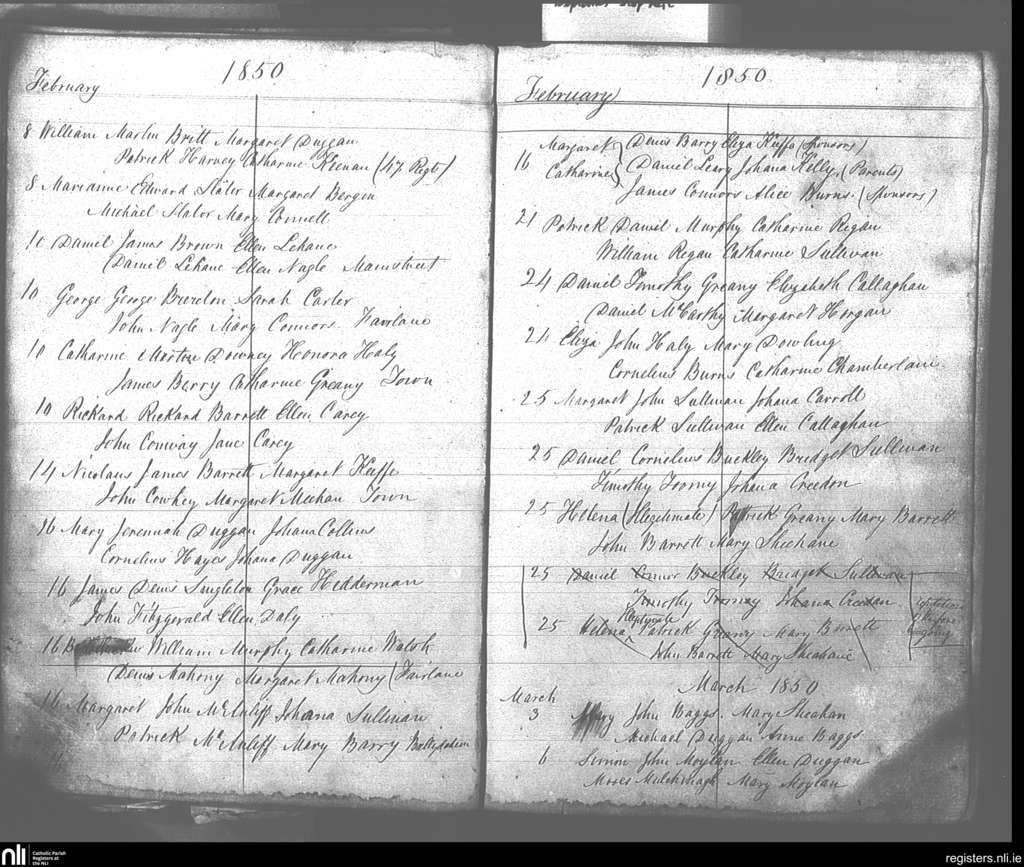 1850
February
8 William Martin Britt Margaret Duggan
Patrick Harvey Catharine Keenan (47 Regt)
8 Marianne Edward Slater Margaret Bergin
Michael Slator Mary Connell
10 Daniel James Brown Ellen Lehane
(Daniel Lehane Ellen Nagle Mainstreet
10 George George Brereton Sarah Carter
John Nagle Mary Connors Fairlane
10 Catharine Morton Downey Honora Haly
James Barry Catharine Greany Town
10 Rickard Rickard Barrett Ellen Carey
John Conway Jane Carey
14 Nicolaus James Barrett Margaret Keffe
John Cowhey Margaret Meehan Town
16 Mary Jeremiah Duggan Johana Collins
Cornelius Hayes Johana Duggan
16 James Denis Singleton Grace Hedderman
John Fitzgerald Ellen Daly
16 William Murphy Catharine Walsh
Denis Mahony Margaret Mahony (Fairlane
16 Margaret John McAuliff Johana Sullivan
Patrick McAuliff Mary Barry
1850
February
Margaret } Denis Barry Eliza Kieffe (Sponsors)
16 Daniel Leary Johana Kelly. (Parents)
Catharine } James Connors Alice Burns. (Sponsors)
21 Patrick Daniel Murphy Catharine Regan
William Regan Catharine Sullivan
24 Daniel Timothy Greany Elizabeth Callaghan
Daniel McCarthy Margaret Horgan
24 Eliza John Haly Mary Dowling
Cornelius Burns Catharine Chamberlain
25 Margaret John Sullivan Johana Carroll
Patrick Sullivan Ellen Callaghan
25 Daniel Cornelius Buckley Bridget Sullivan
Timothy Twomy Johana Creedon
25 Helena (Illegitimate) Patrick Greany Mary Barrett
John Barrett Mary Sheehane
25 Daniel Connor Buckley Bridget Sullivan
Timothy Twomey Johana Creedan
Illegitimate
25 Helena Patrick Greany Mary Barrett
John Barrett Mary Sheahane
March 1850
March
3 Mary John Baggs. Mary Sheahan
Michael Duggan Anne Baggs
6 Simon John Moylan Ellen Duggan
Moses Mulchinagh Mary Moylan
nli Catholic Parish Registers at the NLI
registers.nli.ie